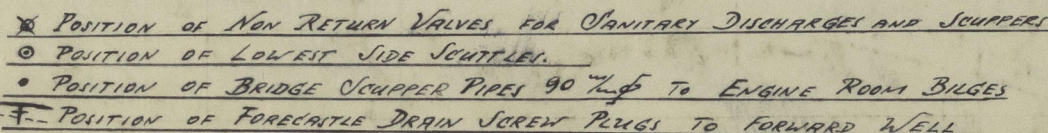 POSITION OF NON RETURN VALVES FOR SANITARY DISCHARGES AND SCUPPERS
POSITION OF LOWEST SIDE SCUTTLES.
POSITION OF BRIDGE SCUPPER PIPES 90 m/mφ TO ENGINE ROOM BILGES
POSITION OF FORECASTLE DRAIN SCREW PLUGS TO FORWARD WELL